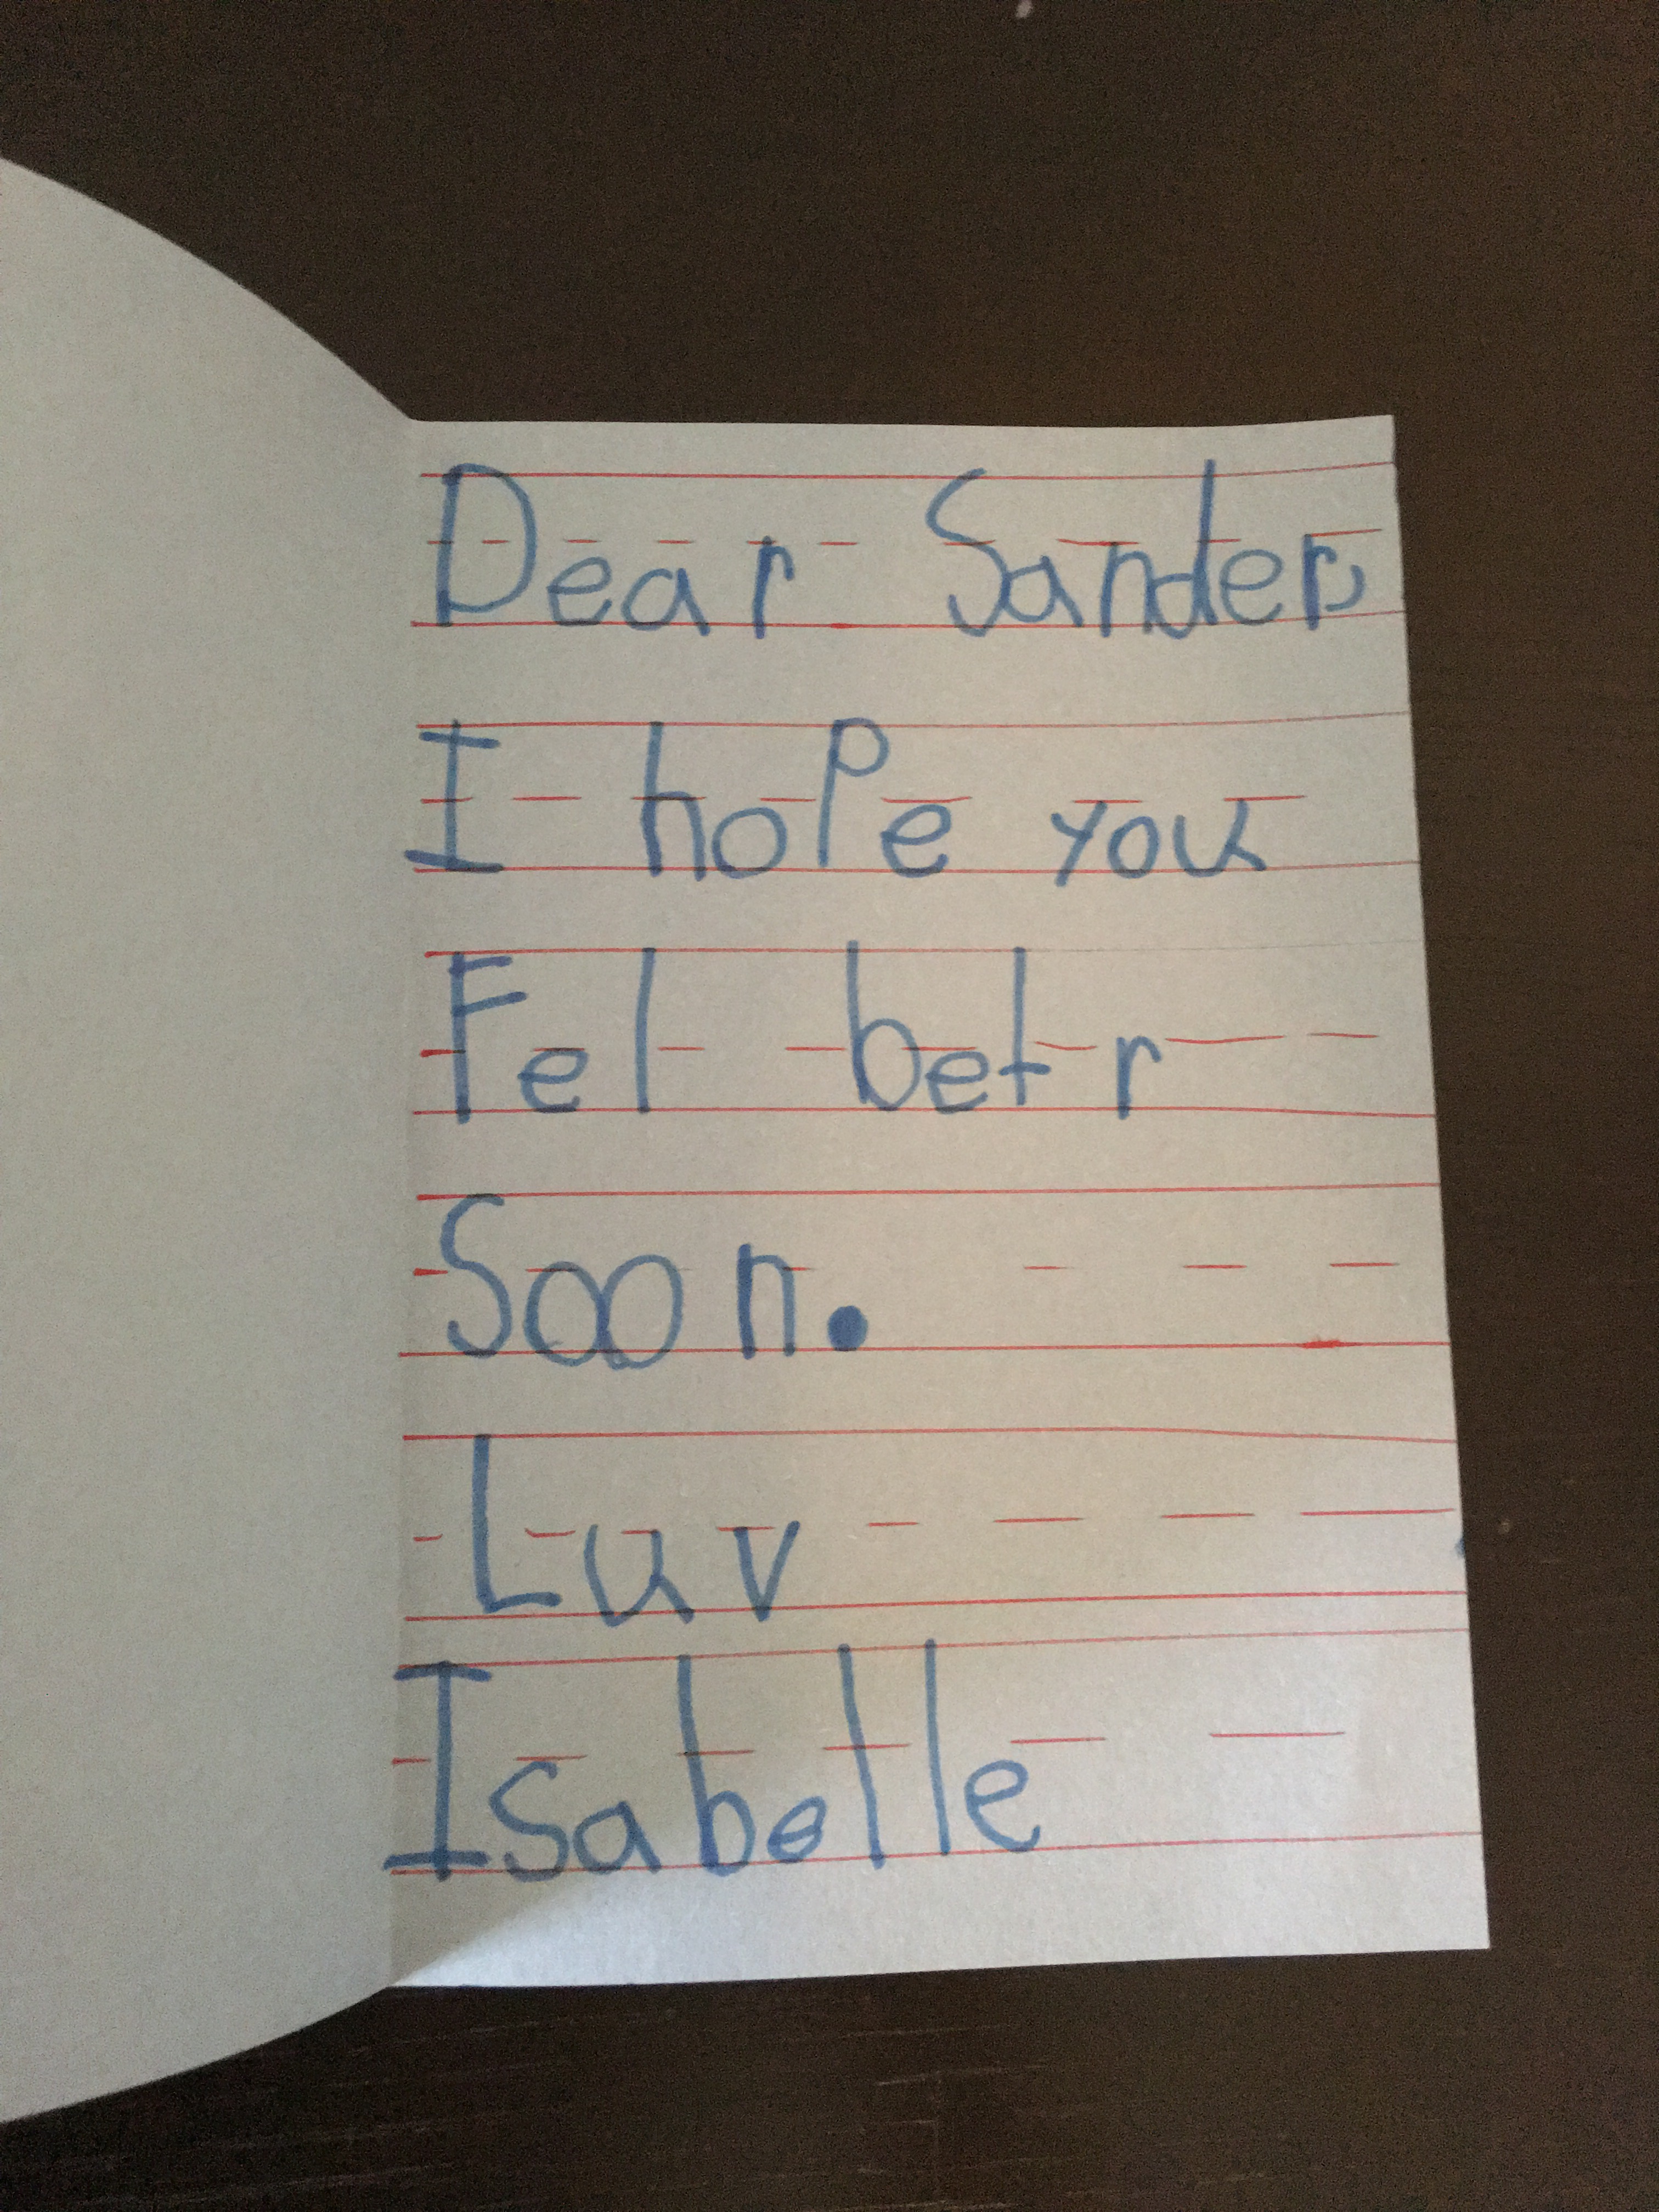 Dear Sander,
I hoPe you
Fel betr
Soon.
Luv
Isabelle